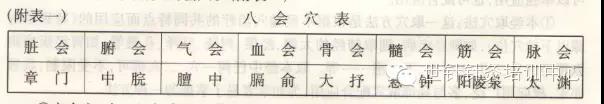 (附表一) 八会穴表
脏会 腑会 气会 血会 骨会 髓会 筋会 脉会
章门 中脘 膻中 膈俞 大抒 悬钟 阳陵泉 太渊
世针针灸培训中心